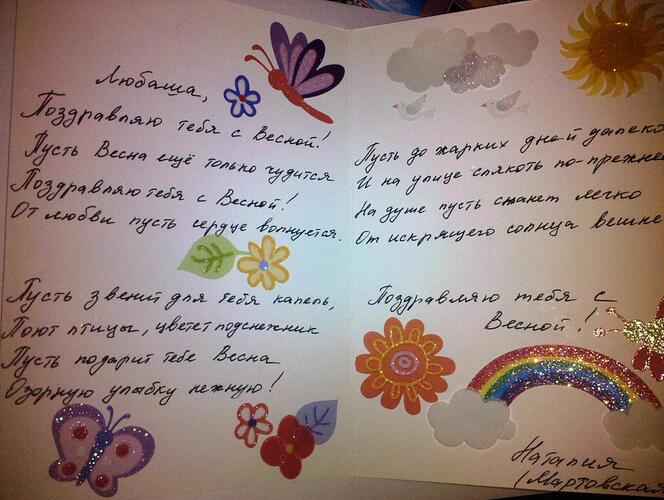 Любаша,
Поздравляю тебя с Весной!
Пусть Весна ещё только чудится
Поздравляю тебя с Весной!
От любви пусть сердце волнуется.
Пусть звенит для тебя капель,
Поют птицы, цветет подснежник
Пусть подарит тебе Весна
Озорную улыбку нежную!
Пусть до жарких дней далеко
И на улице слякоть по-прежне
На душе пусть станет легко
От искрящего солнца вешне
Поздравляю тебя с
Весной!
Наталия
(Мартовская